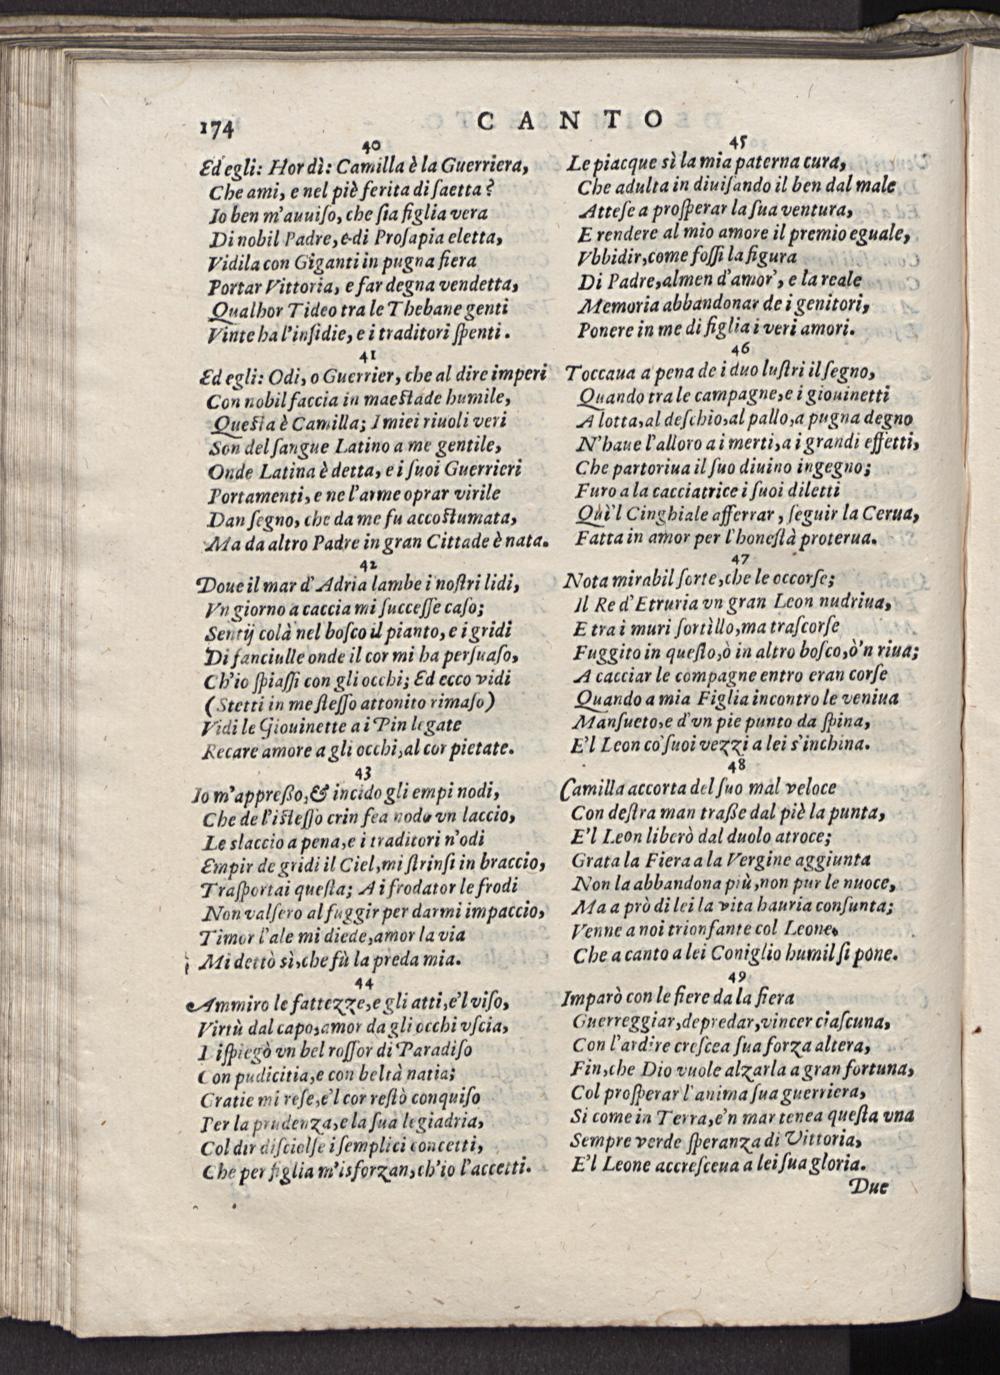 174
CANTO
40
Ed egli: Hor dì: Camilla è la Guerriera,
Che ami, e nel piè ferita di ſaetta?
Io ben m'auuiſo, che ſia figlia vera
Di nobil Padre, e di Proſapia eletta,
Vidila con Giganti in pugna fiera
Portar Vittoria, e far degna vendetta,
Qualhor Tideo tra le Thebane genti
Vinte ha l'inſidie, e i traditori ſpenti.
41
Ed egli: Odi, o Guerrier, che al dire imperi
Con nobil faccia in maeſtade humile,
Queſta è Camilla; I miei riuoli veri
Son del ſangue Latino a me gentile,
Onde Latina è detta, e i ſuoi Guerrieri
Portamenti, e ne l'arme oprar virile
Dan ſegno, che da me fu accoſtumata,
Ma da altro Padre in gran Cittade è nata.
42
Doue il mar d'Adria lambe i noſtri lidi,
Vn giorno a caccia mi ſucceſſe caſo;
Sentij colà nel boſco il pianto, e i gridi
Di fanciulle onde il cor mi ha perſuaſo,
Ch'io ſpiaſſi con gli occhi; Ed ecco vidi
(Stetti in me ſteſſo attonito rimaſo)
Vidi le Giouinette a i Pin legate
Recare amore a gli occhi, al cor pietate.
43
Io m'appreßo, & incido gli empi nodi,
Che de l'iſteſſo crin fea nodo vn laccio,
Le slaccio a pena, e i traditori n'odi
Empir de gridi il Ciel, mi ſtrinſi in braccio,
Traſportai queſta; A i frodator le frodi
Non valſero al fuggir per darmi impaccio,
Timor l'ale mi diede, amor la via
Mi dettò sì, che fù la preda mia.
44
Ammiro le fattezze, e gli atti, e'l viſo,
Virtù dal capo, amor da gli occhi vſcia,
I iſpiegò vn bel roſſor di Paradiſo
Con pudicitia, e con beltà natia;
Gratie mi reſe, e'l cor reſtò conquiſo
Per la prudenza, e la ſua legiadria,
Col dir diſciolſe i ſemplici concetti,
Che per figlia m'isforzan, ch'io l'accetti.
45
Le piacque sì la mia paterna cura,
Che adulta in diuiſando il ben dal male
Atteſe a proſperar la ſua ventura,
E rendere al mio amore il premio eguale,
Vbbidir, come foſſi la figura
Di Padre, almen d'amor, e la reale
Memoria abbandonar de i genitori,
Ponere in me di figlia i veri amori.
46
Toccaua a pena de i duo luſtri il ſegno,
Quando tra le campagne, e i giouinetti
A lotta, al deſchio, al pallo, a pugna degno
N'haue l'alloro a i merti, a i grandi effetti,
Che partoriua il ſuo diuino ingegno;
Furo a la cacciatrice i ſuoi diletti
Qui'l Cinghiale afferrar, ſeguir la Cerua,
Fatta in amor per l'honeſtà proterua.
47
Nota mirabil ſorte, che le occorſe;
Il Re d'Etruria vn gran Leon nudriua,
E tra i muri ſortìllo, ma traſcorſe
Fuggito in queſto, ò in altro boſco, ò'n riua;
A cacciar le compagne entro eran corſe
Quando a mia Figlia incontro le veniua
Manſueto, e d'vn pie punto da ſpina,
E'l Leon co' ſuoi vezzi a lei s'inchina.
48
Camilla accorta del ſuo mal veloce
Con deſtra man traße dal piè la punta,
E'l Leon liberò dal duolo atroce;
Grata la Fiera a la Vergine aggiunta
Non la abbandona più, non pur le nuoce,
Ma a prò di lei la vita hauria conſunta;
Venne a noi trionfante col Leone,
Che a canto a lei Coniglio humil ſi pone.
49
Imparò con le fiere da la fiera
Guerreggiar, depredar, vincer ciaſcuna,
Con l'ardire creſcea ſua forza altera,
Fin, che Dio vuole alzarla a gran fortuna,
Col proſperar l'anima ſua guerriera,
Si come in Terra, e'n mar tenea queſta vna
Sempre verde ſperanza di Vittoria,
E'l Leone accreſceua a lei ſua gloria.
Due